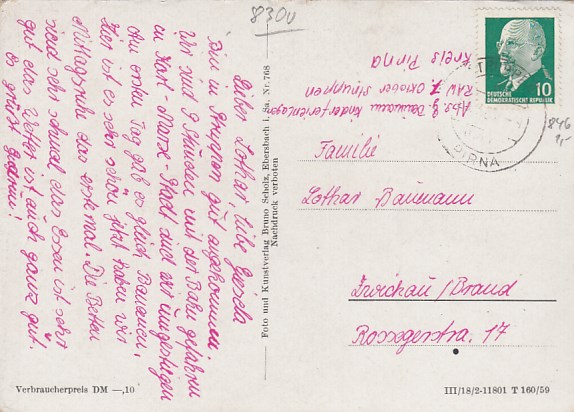 8300
Lieber Lothar, liebe Gisela
Bin in Struppen gut angekommen.
Wir sind 9 Stunden mit der Bahn gefahren
in Karl Marx-Stadt sind wir umgestiegen
Am ersten Tag gab es gleich Bananen.
Hier ist es sehr schön jetzt haben wir
Mittagsruhe das erste mal. Die Betten
sind sehr schmal das Essen ist sehr
gut das Wetter ist auch ganz gut.
Es grüßt
Verbraucherpreis DM —,10
Foto und Kunstverlag Bruno Scholz, Ebersbach i. Sa. Nr. 768
Nachdruck verboten
DEUTSCHE
DEMOKRATISCHE REPUBLIK
10
PIRNA
846
1,-
Abs. J. Baumann Kinderferienlager
RAW 7. Oktober Struppen
Kreis Pirna
Familie
Lothar Baumann
Zwickau/Brand
Rosseggerstr. 17
III/18/2-11801 T 160/59